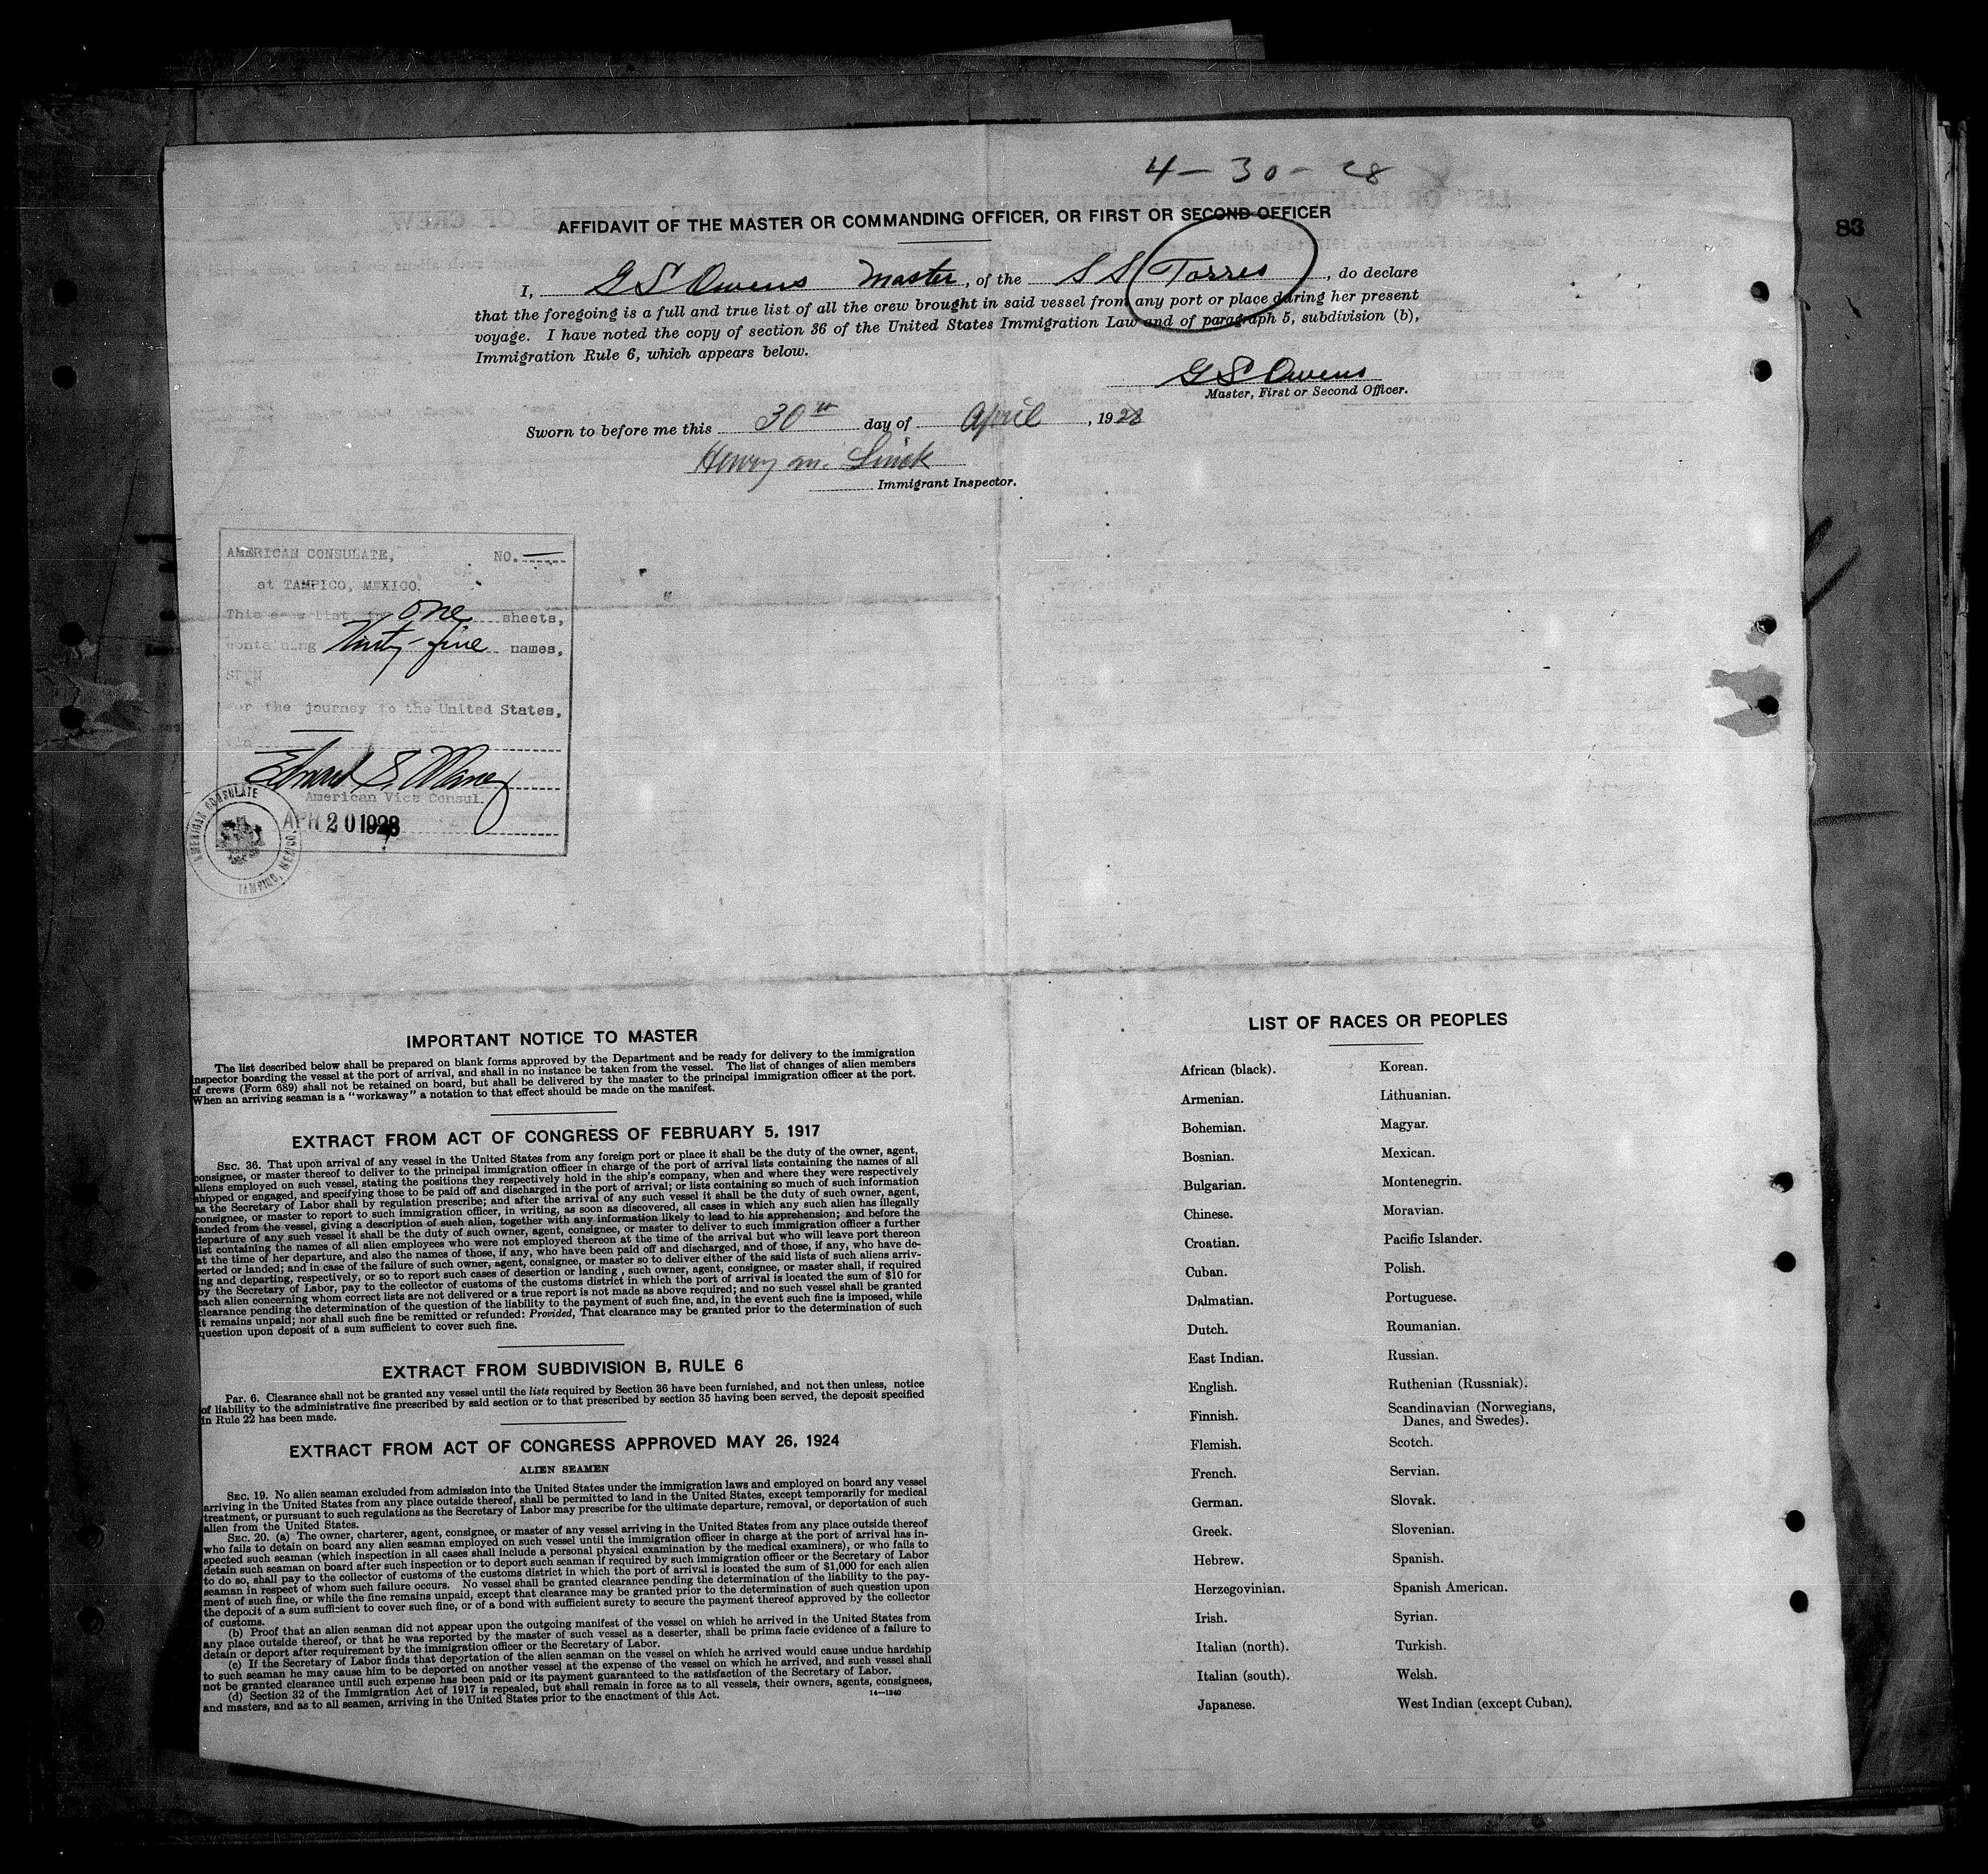 4-30-28
AFFIDAVIT OF THE MASTER OR COMMANDING OFFICER, OR FIRST OR SECOND OFFICER
83
I, G S Owens Master, of the S S Torres, do declare
that the foregoing is a full and true list of all the crew brought in said vessel from any port or place during her present
voyage. I have noted the copy of section 36 of the United States Immigration Law and of paragraph 5, subdivision (b),
Immigration Rule 6, which appears below.
G S Owens
Master, First or Second Officer.
Sworn to before me this 30th day of April, 1928
Henry M.
Immigrant Inspector.
AMERICAN CONSULATE, NO.
at TAMPICO, MEXICO.
This crew list in one sheets,
containing thirty-five names,
for the journey to the United States,
Edward S. Maney
American Vice Consul.
APR 20 1928
AMERICAN CONSULATE
TAMPICO, MEXICO
IMPORTANT NOTICE TO MASTER
The list described below shall be prepared on blank forms approved by the Department and be ready for delivery to the immigration
inspector boarding the vessel at the port of arrival, and shall in no instance be taken from the vessel. The list of changes of alien members
of crews (Form 689) shall not be retained on board, but shall be delivered by the master to the principal immigration officer at the port.
When an arriving seaman is a "workaway" a notation to that effect should be made on the manifest.
EXTRACT FROM ACT OF CONGRESS OF FEBRUARY 5, 1917
SEC. 36. That upon arrival of any vessel in the United States from any foreign port or place it shall be the duty of the owner, agent,
consignee, or master thereof to deliver to the principal immigration officer in charge of the port of arrival lists containing the names of all
aliens employed on such vessel, stating the positions they respectively hold in the ship's company, when and where they were respectively
shipped or engaged, and specifying those to be paid off and discharged in the port of arrival; or lists containing so much of such information
as the Secretary of Labor shall by regulation prescribe; and after the arrival of any such vessel it shall be the duty of such owner, agent,
consignee, or master to report to such immigration officer, in writing, as soon as discovered, all cases in which any such alien has illegally
landed from the vessel, giving a description of such alien, together with any information likely to lead to his apprehension; and before the
departure of any such vessel it shall be the duty of such owner, agent, consignee, or master to deliver to such immigration officer a further
list containing the names of all alien employees who were not employed thereon at the time of the arrival but who will leave port thereon
at the time of her departure, and also the names of those, if any, who have been paid off and discharged, and of those, if any, who have de-
serted or landed; and in case of the failure of such owner, agent, consignee, or master so to deliver either of the said lists of such aliens arriv-
ing and departing, respectively, or so to report such cases of desertion or landing, such owner, agent, consignee, or master shall, if required
by the Secretary of Labor, pay to the collector of customs of the customs district in which the port of arrival is located the sum of $10 for
each alien concerning whom correct lists are not delivered or a true report is not made as above required; and no such vessel shall be granted
clearance pending the determination of the question of the liability to the payment of such fine, and, in the event such fine is imposed, while
it remains unpaid; nor shall such fine be remitted or refunded: Provided, That clearance may be granted prior to the determination of such
question upon deposit of a sum sufficient to cover such fine.
EXTRACT FROM SUBDIVISION B, RULE 6
Par. 6. Clearance shall not be granted any vessel until the lists required by Section 36 have been furnished, and not then unless, notice
of liability to the administrative fine prescribed by said section or to that prescribed by section 35 having been served, the deposit specified
in Rule 22 has been made.
EXTRACT FROM ACT OF CONGRESS APPROVED MAY 26, 1924
ALIEN SEAMEN
SEC. 19. No alien seaman excluded from admission into the United States under the immigration laws and employed on board any vessel
arriving in the United States from any place outside thereof, shall be permitted to land in the United States, except temporarily for medical
treatment, or pursuant to such regulations as the Secretary of Labor may prescribe for the ultimate departure, removal, or deportation of such
alien from the United States.
SEC. 20. (a) The owner, charterer, agent, consignee, or master of any vessel arriving in the United States from any place outside thereof
who fails to detain on board any alien seaman employed on such vessel until the immigration officer in charge at the port of arrival has in-
spected such seaman (which inspection in all cases shall include a personal physical examination by the medical examiners), or who fails to
detain such seaman on board after such inspection or to deport such seaman if required by such immigration officer or the Secretary of Labor
to do so, shall pay to the collector of customs of the customs district in which the port of arrival is located the sum of $1,000 for each alien
seaman in respect of whom such failure occurs. No vessel shall be granted clearance pending the determination of the liability to the pay-
ment of such fine, or while the fine remains unpaid, except that clearance may be granted prior to the determination of such question upon
the deposit of a sum sufficient to cover such fine, or of a bond with sufficient surety to secure the payment thereof approved by the collector
of customs.
(b) Proof that an alien seaman did not appear upon the outgoing manifest of the vessel on which he arrived in the United States from
any place outside thereof, or that he was reported by the master of such vessel as a deserter, shall be prima facie evidence of a failure to
detain or deport after requirement by the immigration officer or the Secretary of Labor.
(c) If the Secretary of Labor finds that deportation of the alien seaman on the vessel on which he arrived would cause undue hardship
to such seaman he may cause him to be deported on another vessel at the expense of the vessel on which he arrived, and such vessel shall
not be granted clearance until such expense has been paid or its payment guaranteed to the satisfaction of the Secretary of Labor.
(d) Section 32 of the Immigration Act of 1917 is repealed, but shall remain in force as to all vessels, their owners, agents, consignees,
and masters, and as to all seamen, arriving in the United States prior to the enactment of this Act. 14—1240
LIST OF RACES OR PEOPLES
African (black). Korean.
Armenian. Lithuanian.
Bohemian. Magyar.
Bosnian. Mexican.
Bulgarian. Montenegrin.
Chinese. Moravian.
Croatian. Pacific Islander.
Cuban. Polish.
Dalmatian. Portuguese.
Dutch. Roumanian.
East Indian. Russian.
English. Ruthenian (Russniak).
Finnish. Scandinavian (Norwegians,
Danes, and Swedes).
Flemish. Scotch.
French. Servian.
German. Slovak.
Greek. Slovenian.
Hebrew. Spanish.
Herzegovinian. Spanish American.
Irish. Syrian.
Italian (north). Turkish.
Italian (south). Welsh.
Japanese. West Indian (except Cuban).